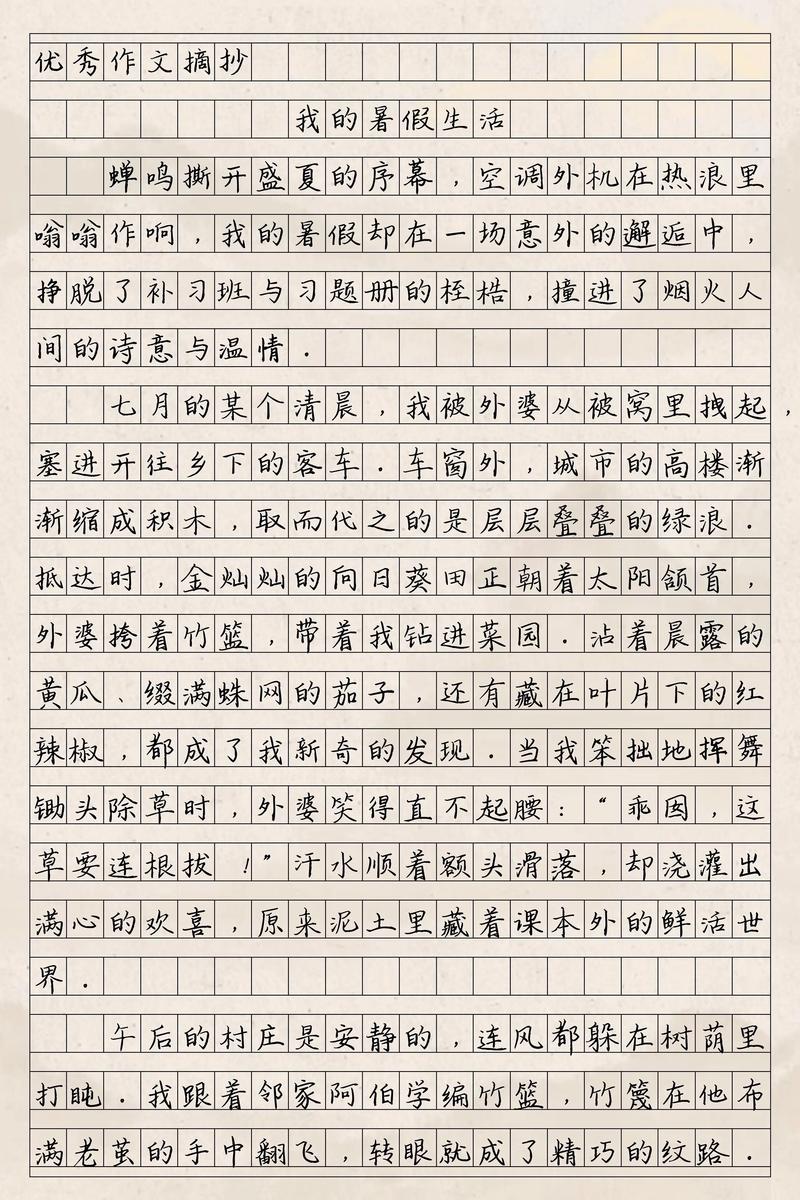 优秀作文摘抄
我的暑假生活
蝉鸣撕开盛夏的序幕，空调外机在热浪里
嗡嗡作响，我的暑假却在一场意外的邂逅中，
挣脱了补习班与习题册的桎梏，撞进了烟火人
间的诗意与温情．
七月的某个清晨，我被外婆从被窝里拽起，
塞进开往乡下的客车．车窗外，城市的高楼渐
渐缩成积木，取而代之的是层层叠叠的绿浪．
抵达时，金灿灿的向日葵田正朝着太阳颔首，
外婆挎着竹篮，带着我钻进菜园．沾着晨露的
黄瓜、缀满蛛网的茄子，还有藏在叶片下的红
辣椒，都成了我新奇的发现．当我笨拙地挥舞
锄头除草时，外婆笑得直不起腰：“乖囡，这
草要连根拔！”汗水顺着额头滑落，却浇灌出
满心的欢喜，原来泥土里藏着课本外的鲜活世
界．
午后的村庄是安静的，连风都躲在树荫里
打盹．我跟着邻家阿伯学编竹篮，竹篾在他布
满老茧的手中翻飞，转眼就成了精巧的纹路．